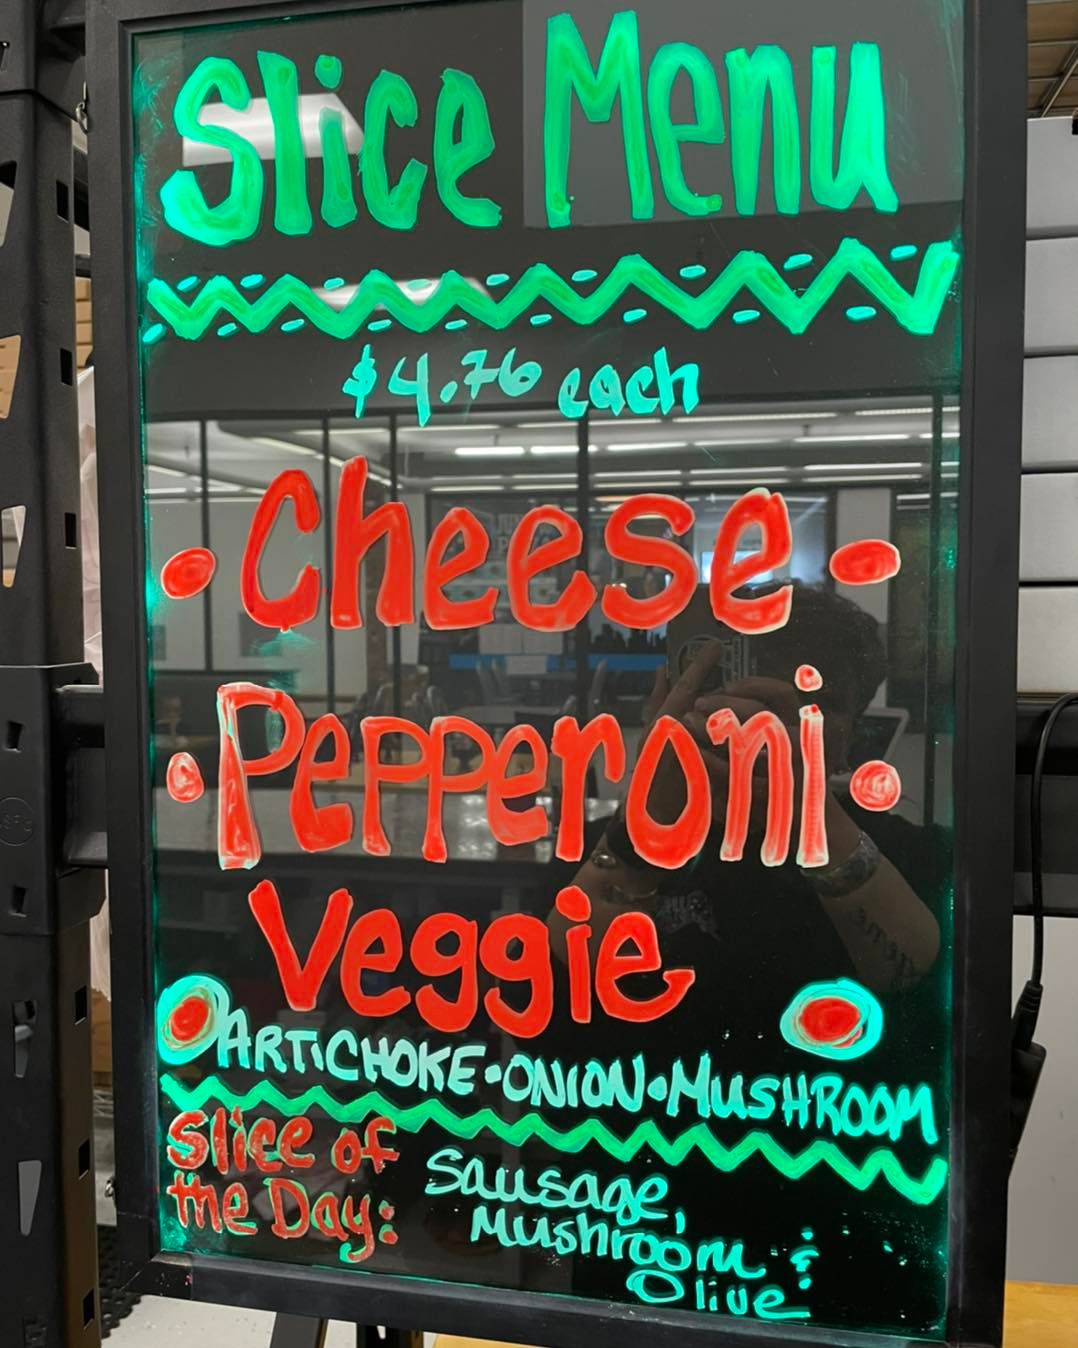 Slice Menu
$4.76 each
• Cheese •
• Pepperoni •
Veggie
ARTICHOKE • ONION • MUSHROOM
Slice of
the Day:
Sausage,
Mushroom &
Olive